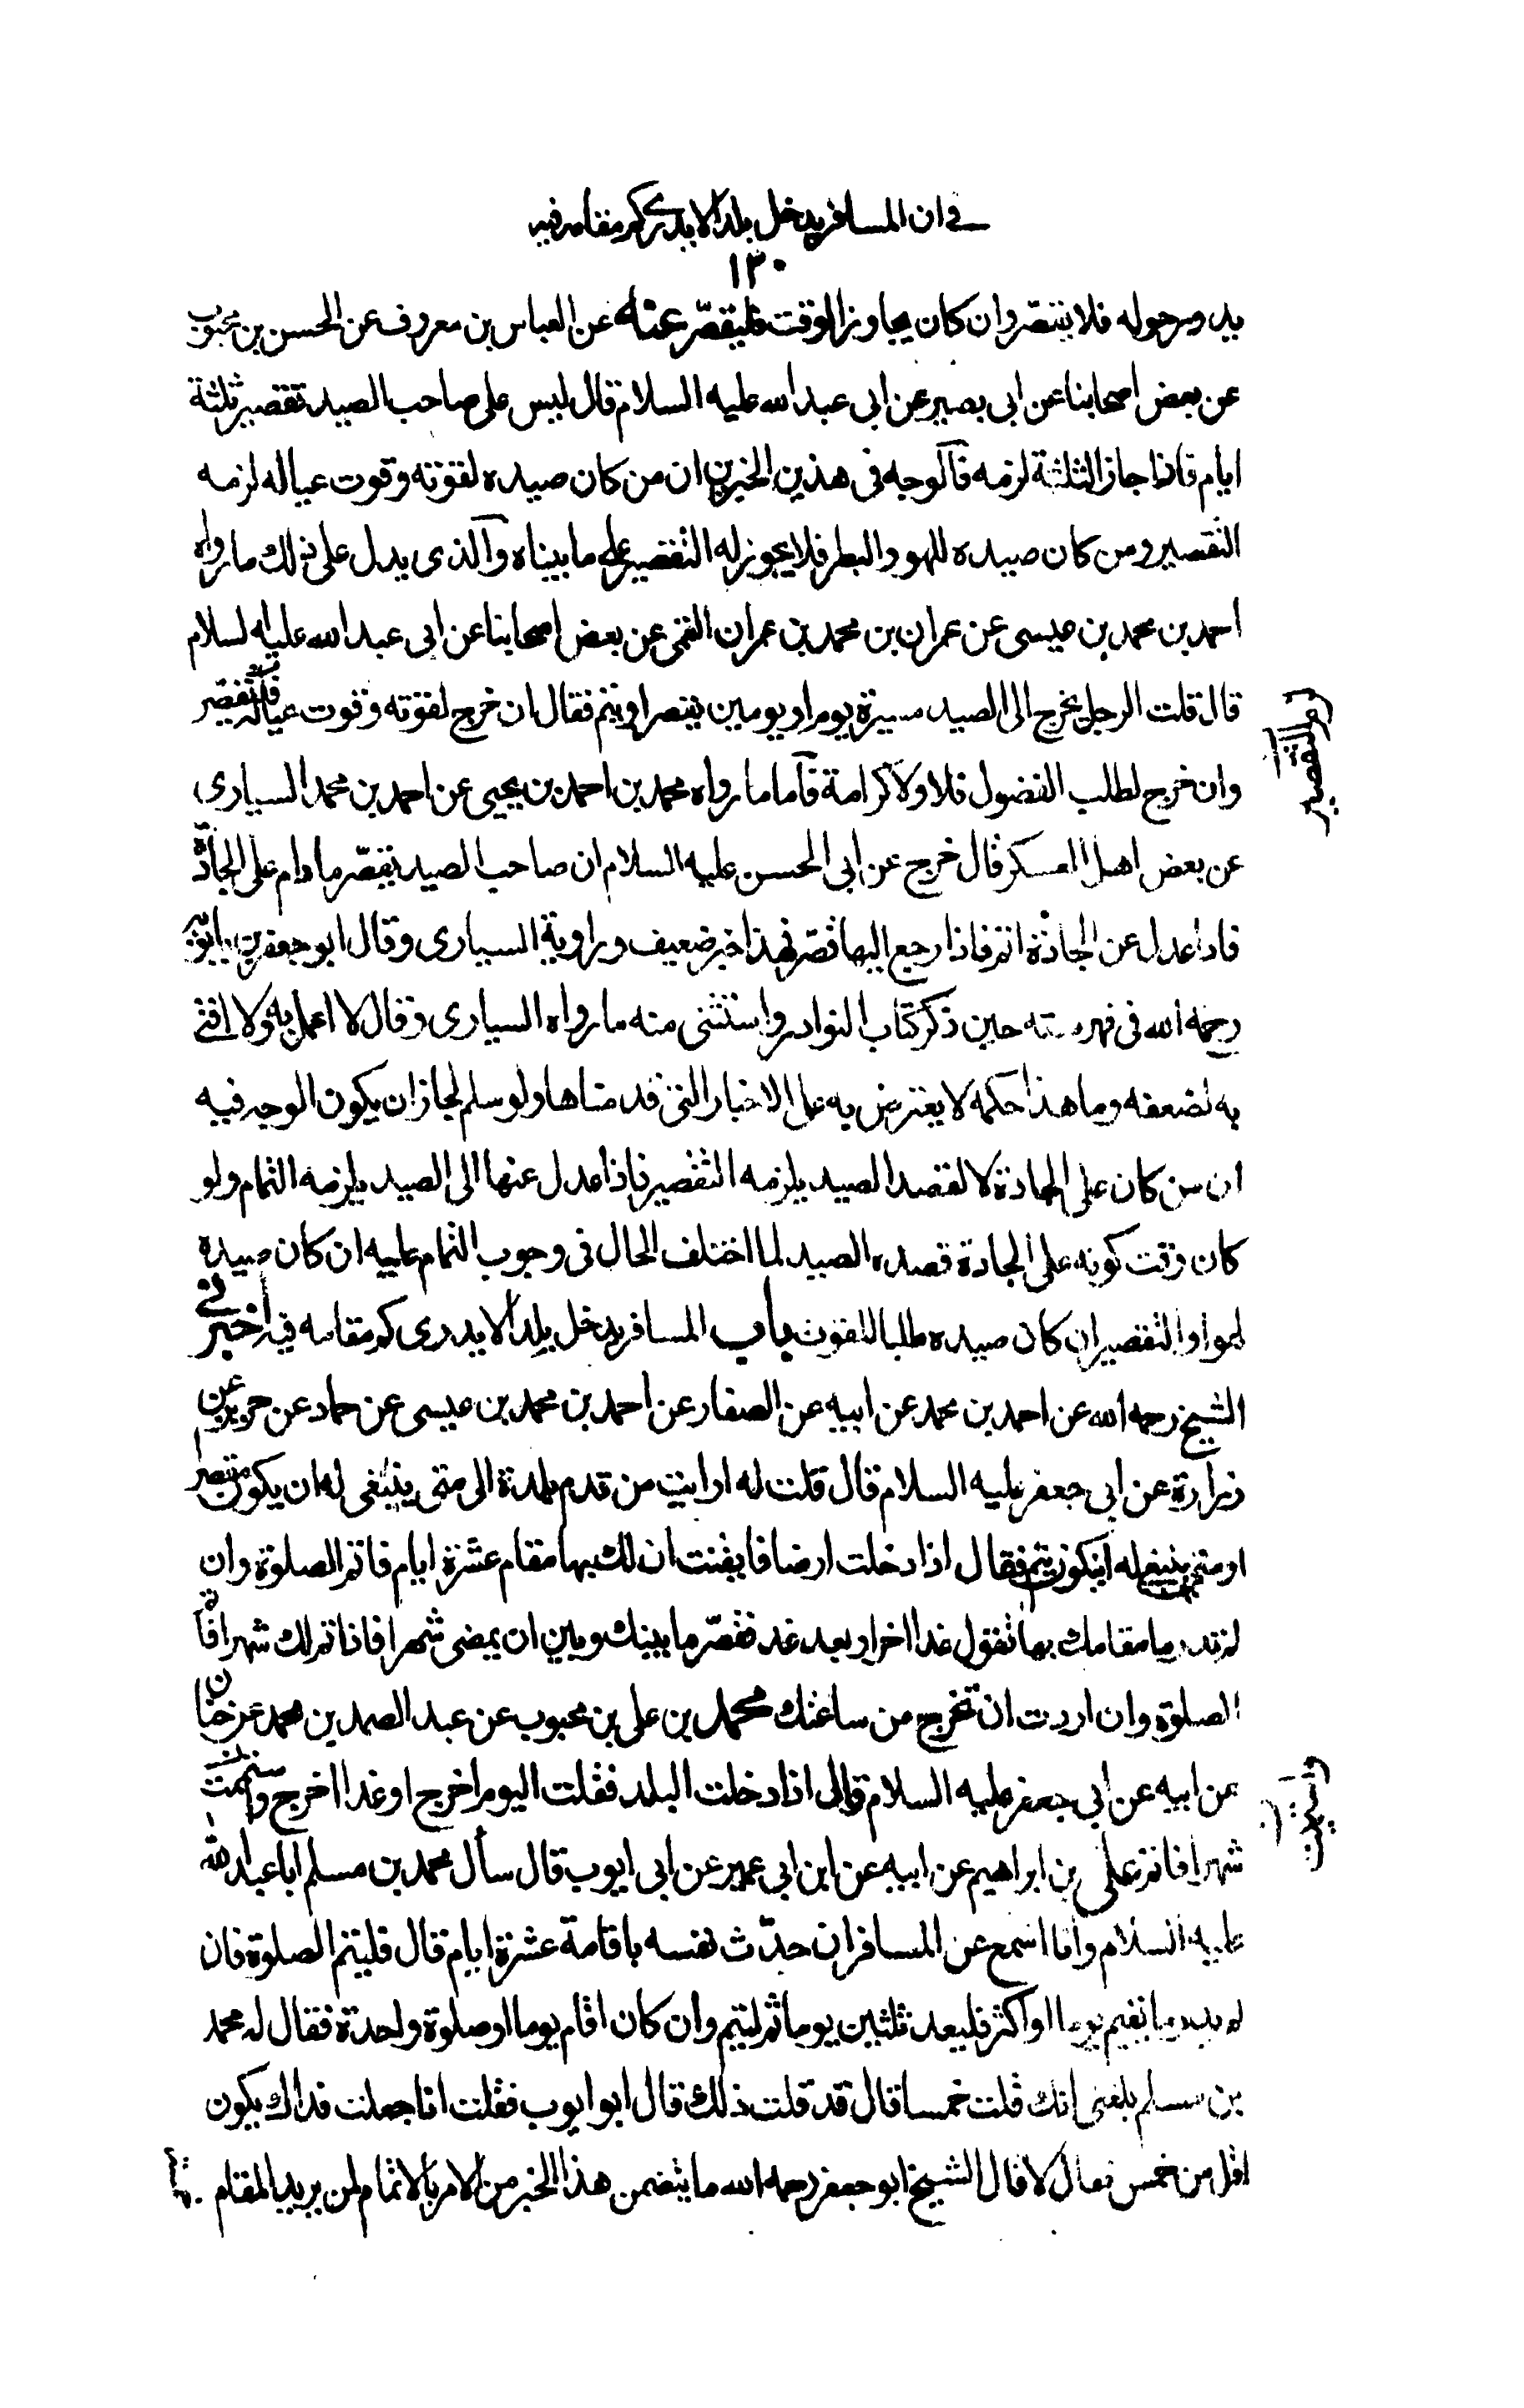 في ان المسافر يدخل بلدا لا يدرى كم مقامه فيه
١٣٠
يد ورحوله فلا يقصر وان كان يجاوز الوقت فليقصّر عنه عن العباس بن معروف عن الحسن بن محبوب
عن بعض اصحابنا عن ابى بصير عن ابى عبد الله عليه السلام قال ليس على صاحب الصيد تقصير ثلثة
ايام فاذا جاز الثلثة لزمه فالوجه فى هذين الخبرين ان من كان صيده لقوته وقوت عياله لزمه
التقصير ومن كان صيده للهو والبطر فلا يجوز له التقصير على ما بيناه والذى يدل على ذلك ما رواه
احمد بن محمد بن عيسى عن عمران بن محمد بن عمران القمى عن بعض اصحابنا عن ابى عبد الله عليه السلام
قال قلت الرجل يخرج الى الصيد مسيرة يوم او يومين يقصر او يتم فقال ان خرج لقوته وقوت عياله فليقصّر
وان خرج لطلب الفضول فلا ولا كرامة فاما ما رواه محمد بن احمد بن يحيى عن احمد بن محمد السيارى
عن بعض اهل العسكر قال خرج عن ابى الحسن عليه السلام ان صاحب الصيد يقصّر ما دام على الجادّة
فاذا عدل عن الجادّة اتم فاذا رجع اليها قصّر فهذا خبر ضعيف وراويه السيارى وقال ابو جعفر بن بابويه
رحمه الله فى فهرسته حين ذكر كتاب النوادر واستثنى منه ما رواه السيارى وقال لا اعمل به ولا افتى
به لضعفه وما هذا حكمه لا يعترض به على الاخبار التى قدمناها ولو سلم لجاز ان يكون الوجه فيه
ان من كان على الجادة لا لقصد الصيد يلزمه التقصير فاذا عدل عنها الى الصيد يلزمه التمام ولو
كان وقت كونه على الجادة قصده الصيد لما اختلف الحال فى وجوب التمام عليه ان كان صيده
لهوا والتقصير ان كان صيده طلبا للقوت باب المسافر يدخل بلدا لا يدرى كم مقامه فيه اخبرنى
الشيخ رحمه الله عن احمد بن محمد عن ابيه عن الصفار عن احمد بن محمد بن عيسى عن حماد عن حريز عن
زرارة عن ابى جعفر عليه السلام قال قلت له ارايت من قدم بلدة الى متى ينبغى له ان يكون مقصرا
او متى ينبغى له ان يكون يتم فقال اذا دخلت ارضا فايقنت ان لك بها مقام عشرة ايام فاتم الصلوة وان
لم تدر ما مقامك بها تقول غدا اخر او بعد غد فقصّر ما بينك وبين ان يمضى شهر فاذا تم لك شهر فاتمّ
الصلوة وان اردت ان تخرج من ساعتك محمد بن على بن محبوب عن عبد الصمد بن محمد عن حنان
عن ابيه عن ابى جعفر عليه السلام قال اذا دخلت البلد فقلت اليوم اخرج او غدا اخرج واستتممت
شهرا فاتم على بن ابراهيم عن ابيه عن ابن ابى عمير عن ابى ايوب قال سأل محمد بن مسلم ابا عبد الله
عليه السلام وانا اسمع عن المسافر ان حدّث نفسه باقامة عشرة ايام قال فليتم الصلوة فان
لم يدر ما يقيم يوما او اكثر فليعد ثلثين يوما ثم ليتم وان كان اقام يوما او صلوة واحدة فقال له محمد
بن مسلم بلغنى انك قلت خمسا قال قد قلت ذلك قال ابو ايوب فقلت انا جعلت فداك يكون
اقل من خمس فقال لا قال الشيخ ابو جعفر رحمه الله ما يتضمن هذا الخبر من الامر بالاتمام لمن يريد المقام